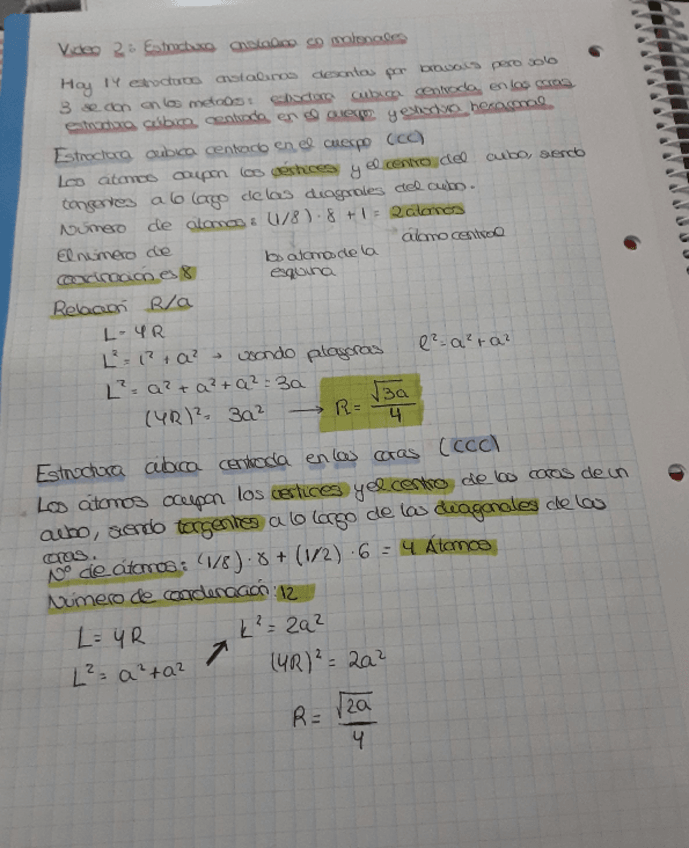 Video 2: Estructura cristalina en materiales
Hay 14 estructuras cristalinas descritas por bravais pero solo
3 se dan en los metales: estructura cubica centrada en las caras
estructura cúbica centrada en el cuerpo y estructura hexagonal
Estructura cubica centrada en el cuerpo (CC)
Los átomos ocupan los vértices y el centro del cubo, siendo
tangentes a lo largo de las diagonales del cubo.
Número de átomos: (1/8) · 8 + 1 = 2 átomos
El número de
coordinación es 8
los atomos de la
esquina
átomo central
Relación R/a
L = 4R
L² = l² + a² → usando pitagoras l² = a² + a²
L² = a² + a² + a² = 3a
(4R)² = 3a² → R = √3a / 4
Estructura cúbica centrada en las caras (CCC)
Los átomos ocupan los vertices y el centro de las caras de un
cubo, siendo tangentes a lo largo de las diagonales de las
caras.
Nº de átomos: (1/8) · 8 + (1/2) · 6 = 4 Átomos
Número de coordinación: 12
L = 4R
L² = a² + a²
L² = 2a²
(4R)² = 2a²
R = √2a / 4